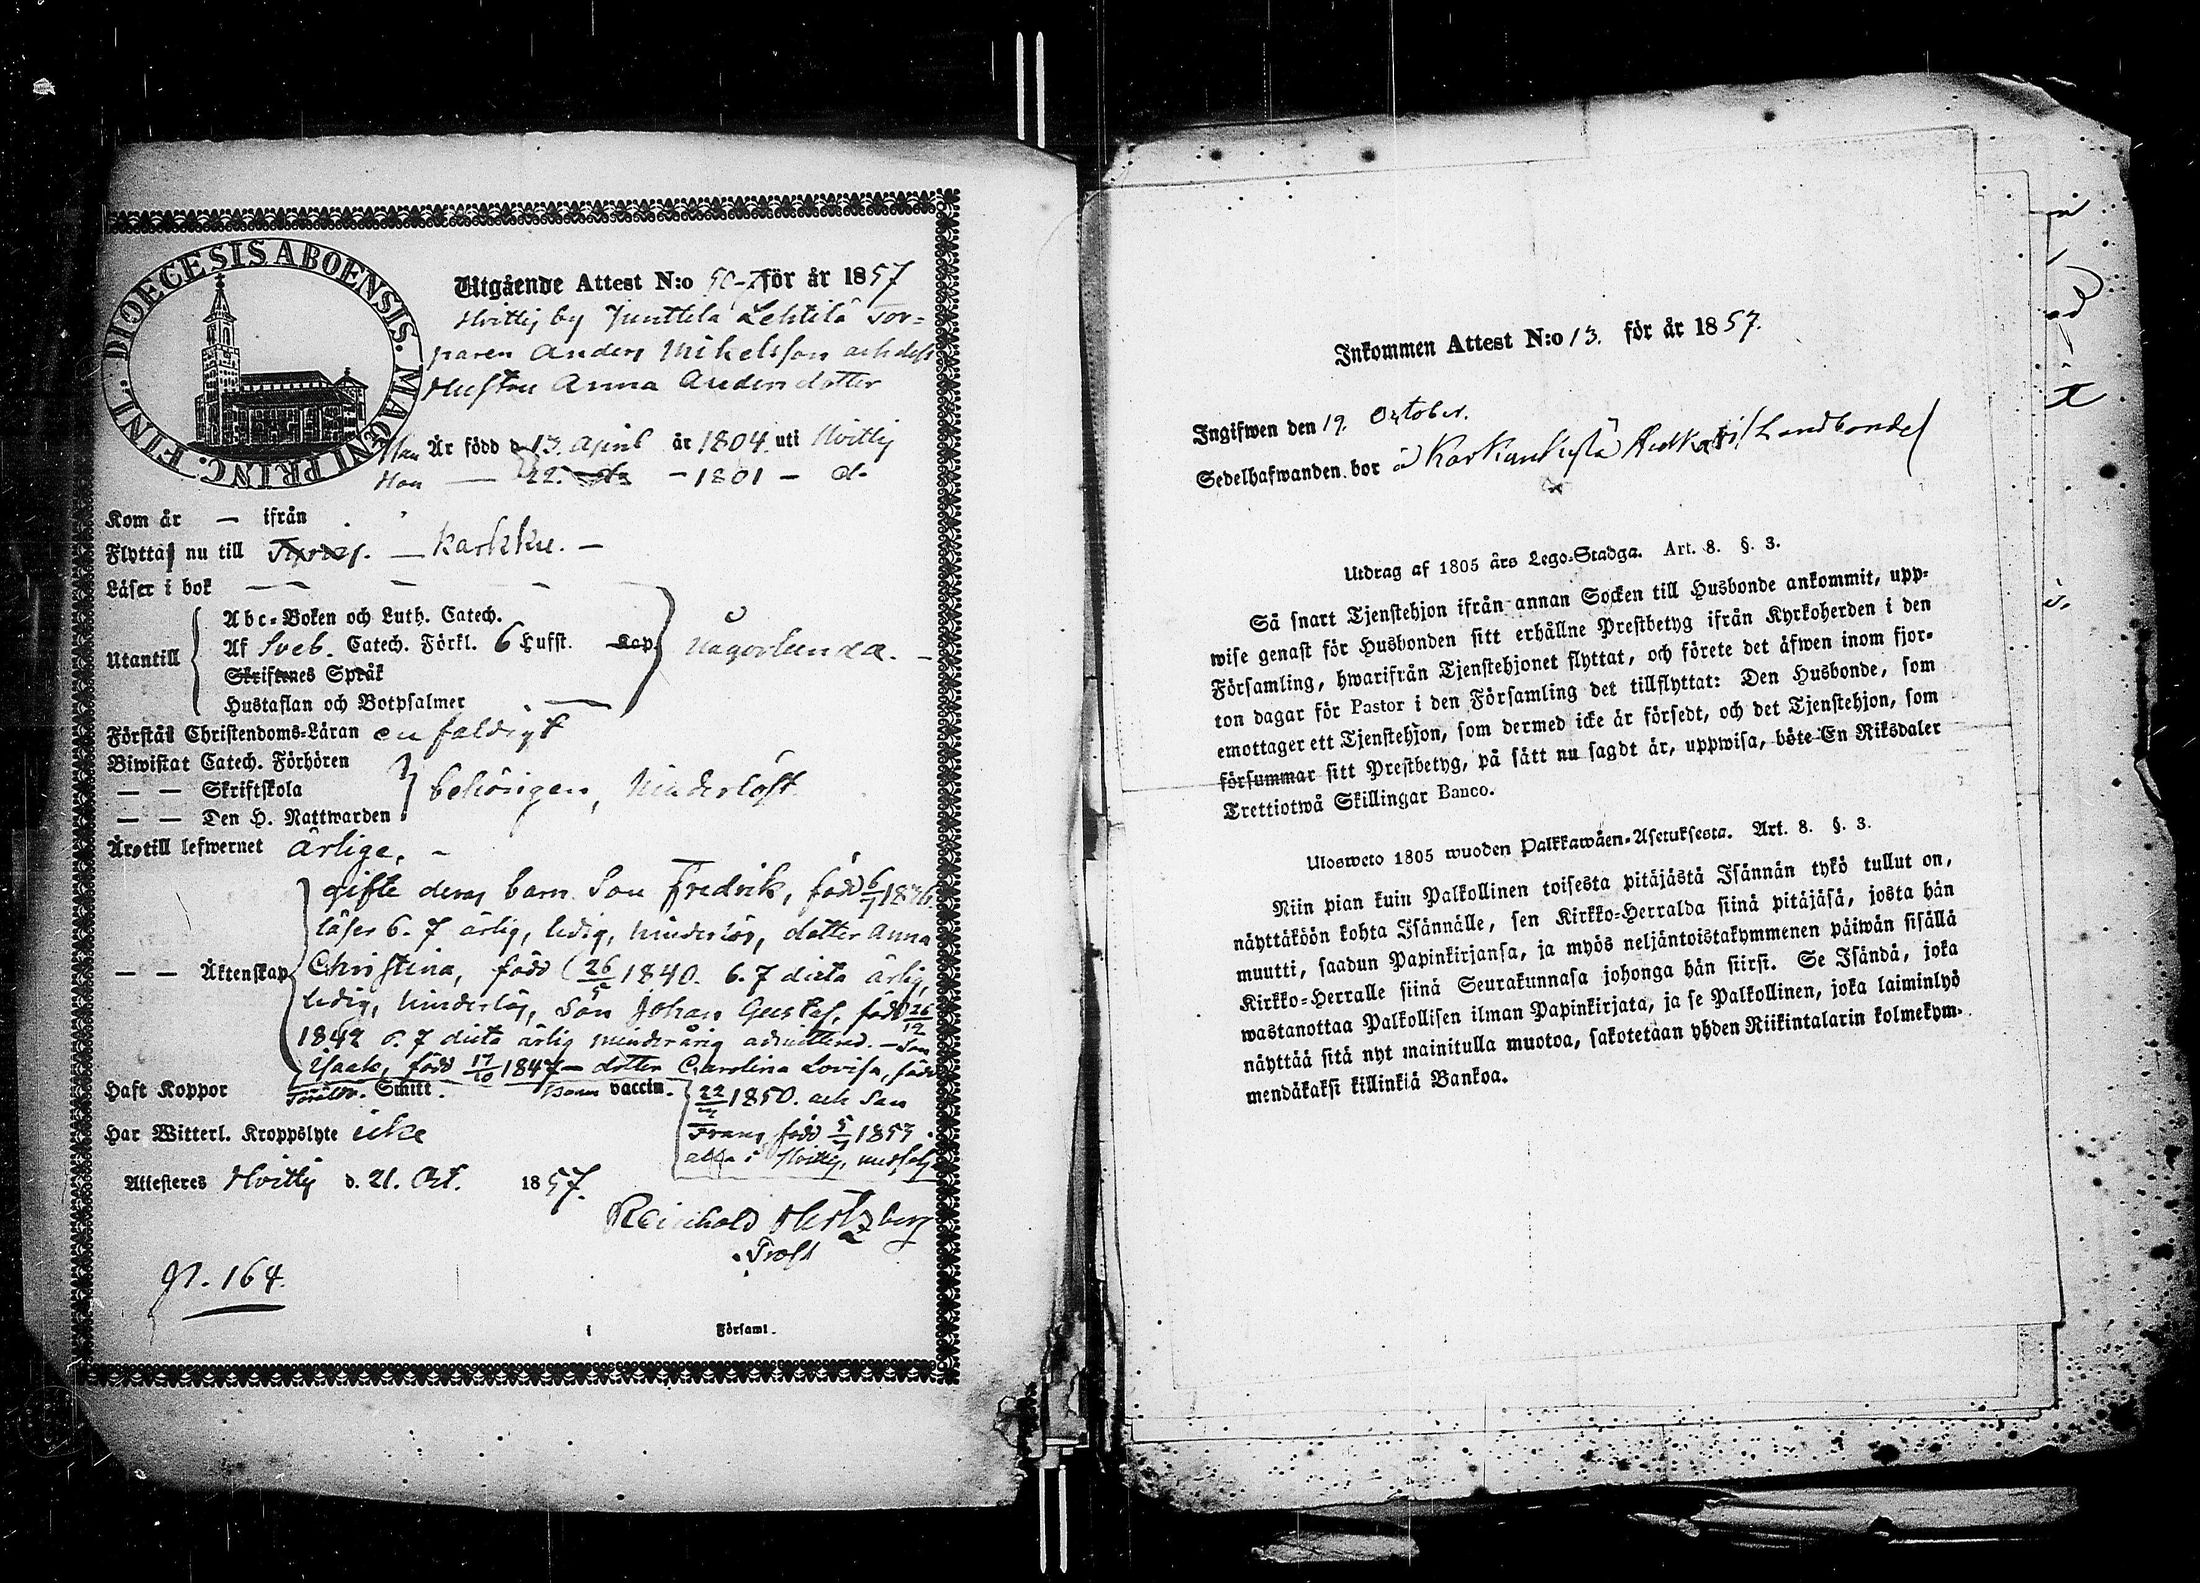 DIOECESIS ABOENSIS. MAGNI PRINC. FINL.
Utgående Attest N:o för år 1857
Hvittis by Junttila Lehtilä Tor=
paren Anders Mikelsson och dess
Hustru Anna Andersdotter
Han Är född d. 13. April år 1804. uti Hvittis
Hon — 22. — 1801 — d:o
Kom år — ifrån
Flyttas nu till Karkku. —
Läser i bok — — —
Utantill
Abc-Boken och Luth. Catech.
Af Sveb. Catech. Förkl. 6 Hufst. Kap.
Skriftenes Språk
Hustaflan och Botpsalmer
någorlunda. —
Förstår Christendoms-Läran enfaldigt
Biwistat Catech. Förhören
— — Skriftskola
— — Den H. Nattwarden
behörigen, hinderlöst
Är till lefwernet ärlige. —
— — Äktenskap
gifte deras barn Son Fredrik, född 6/7 1836.
läser 6. 7 ärlig, ledig, hinderlös, dotter Anna
Christina, född 26/5 1840. 6. 7 dicta ärlig,
ledig, hinderlös, Son Johan Gustaf, född 26/12
1842 6. 7 dicta ärlig minderårig admitterad. — Son
Isaak, född 17/10 1847 — dotter Carolina Lovisa, född
22 1850. och Son
Frans, född 5 1853.
alla i Hvittis,
Haft Koppor Föräldr. Smitt. Barn vaccin.
Har Witterl. Kroppslyte icke
Attesteres Hvittis d. 21. Oct. 1857.
Reinhold Hertzberg
Prost
N. 164.
i Församl.
Inkommen Attest N:o 13. för år 1857.
Ingifwen den 19. October.
Sedelhafwanden bor å Landbonde
Utdrag af 1805 års Lego-Stadga. Art. 8. §. 3.
Så snart Tjenstehjon ifrån annan Socken till Husbonde ankommit, upp-
wise genast för Husbonden sitt erhållne Prestbetyg ifrån Kyrkoherden i den
Församling, hwarifrån Tjenstehjonet flyttat, och förete det äfwen inom fjor-
ton dagar för Pastor i den Församling det tillflyttat: Den Husbonde, som
emottager ett Tjenstehjon, som dermed icke är försedt, och det Tjenstehjon, som
försummar sitt Prestbetyg, på sätt nu sagdt är, uppwisa, böte En Riksdaler
Trettiotwå Skillingar Banco.
Ulosweto 1805 wuoden Palkkawäen-Asetuksesta. Art. 8. §. 3.
Niin pian kuin Palkollinen toisesta pitäjästä Isännän tykö tullut on,
näyttäköön kohta Isännälle, sen Kirkko-Herralda siinä pitäjäsä, josta hän
muutti, saadun Papinkirjansa, ja myös neljäntoistakymmenen päiwän sisällä
Kirkko-Herralle siinä Seurakunnasa johonga hän siirsi. Se Isändä, joka
wastanottaa Palkollisen ilman Papinkirjata, ja se Palkollinen, joka laiminlyö
näyttää sitä nyt mainitulla muotoa, sakotetaan yhden Riikintalarin kolmekym-
mendäkaksi killinkiä Bankoa.